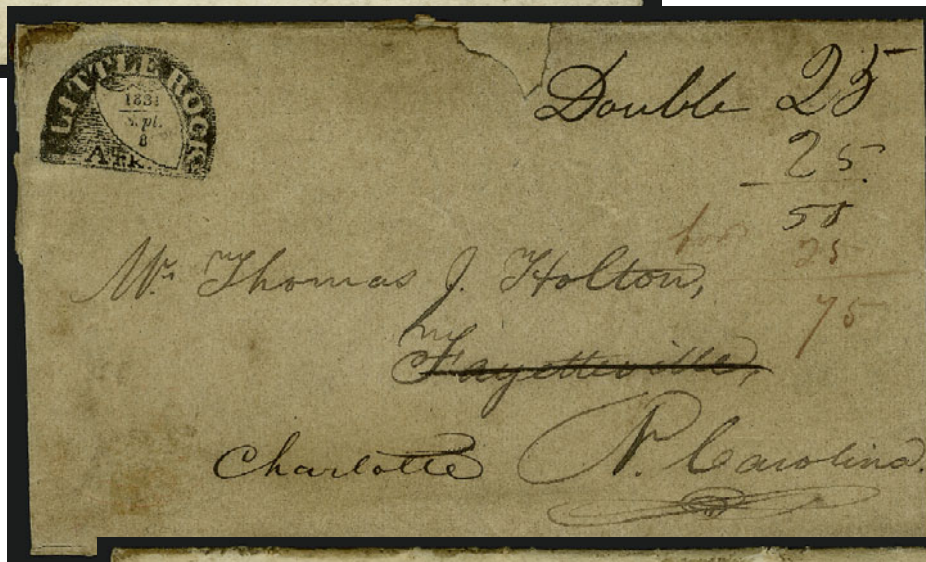 LITTLE ROCK
1831
Sept.
8
Ark.
Double 25
25
50
25
75
Mr. Thomas J. Holton,
Fayetteville,
Charlotte N. Carolina.